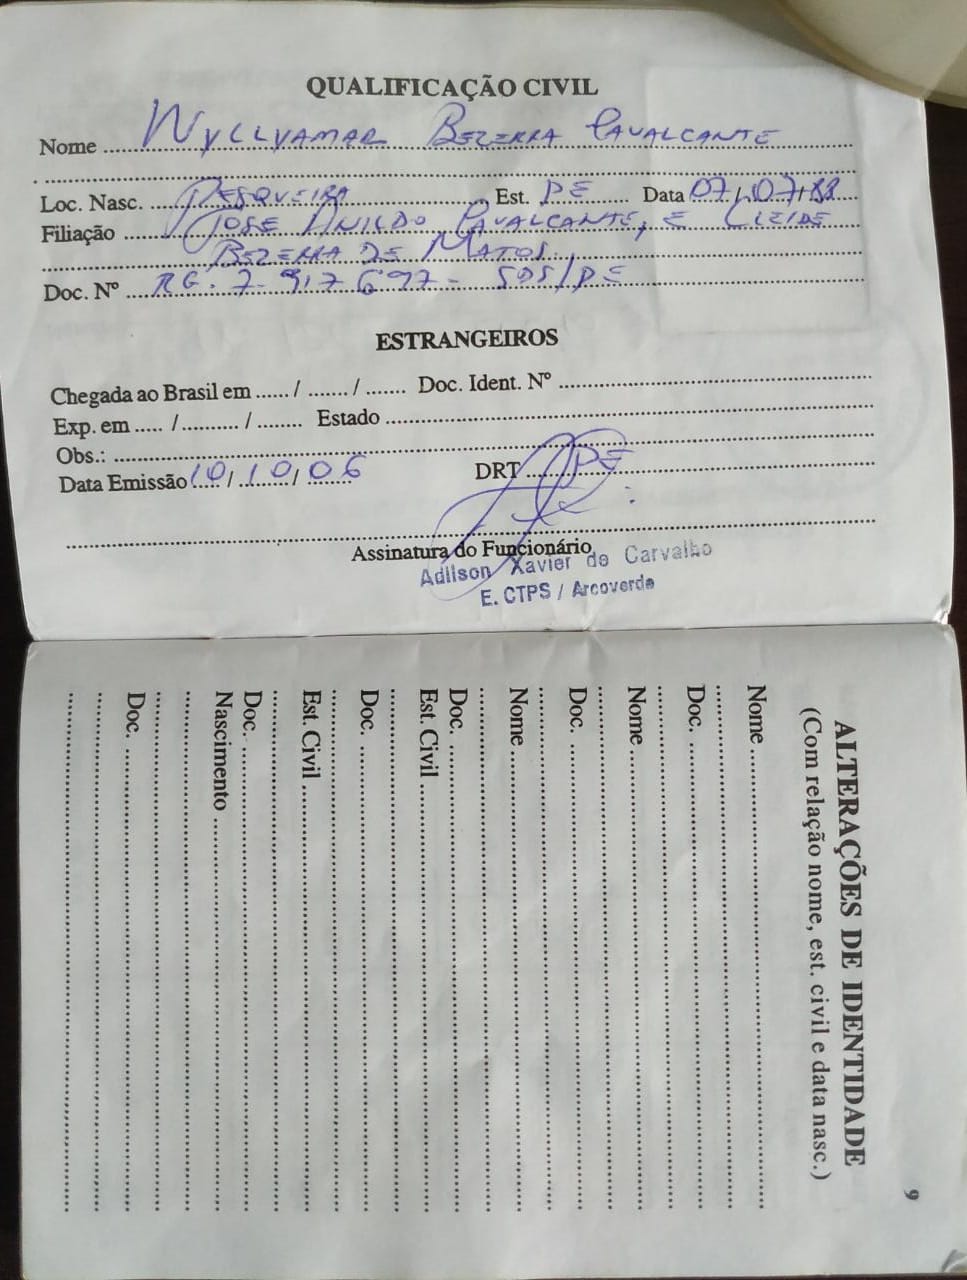 QUALIFICAÇÃO CIVIL
Nome ........ WYLLYAMAR BEZERRA CAVALCANTE
Loc. Nasc. .... PESQUEIRA ........ Est. PE ........ Data 07/07/88
Filiação ........ JOSE ANILDO CAVALCANTE, E CLEIDE
BEZERRA DE MATOS.
Doc. Nº .... RG. 7.917697 - SDS/PE
ESTRANGEIROS
Chegada ao Brasil em ...... / ....... / ....... Doc. Ident. Nº ........
Exp. em ..... / .......... / ........ Estado ........
Obs.: ........
Data Emissão 10/10/06 DRT ...... PE
Assinatura do Funcionário
Adilson Xavier de Carvalho
E. CTPS / Arcoverde
9
ALTERAÇÕES DE IDENTIDADE
(Com relação nome, est. civil e data nasc.)
Nome ........
Doc. ........
Nome ........
Doc. ........
Nome ........
Doc. ........
Est. Civil ........
Doc. ........
Est. Civil ........
Doc. ........
Nascimento ........
Doc. ........